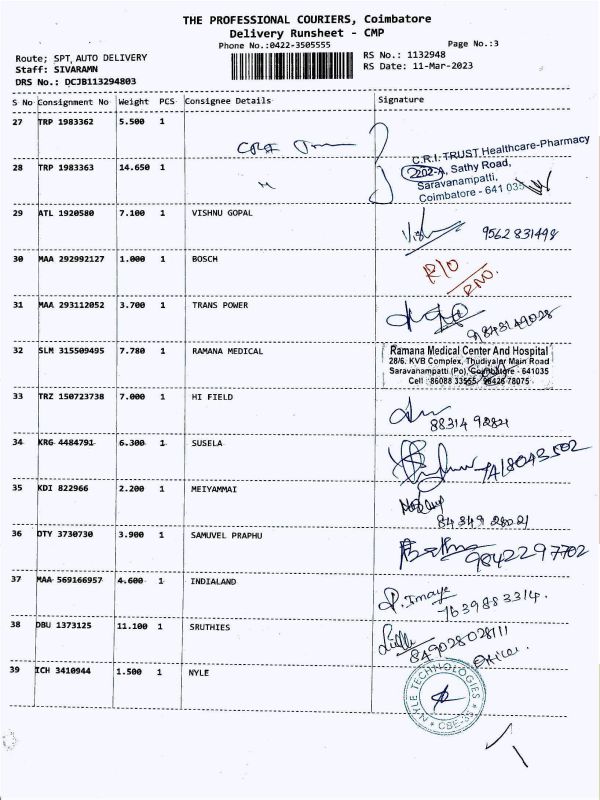 THE PROFESSIONAL COURIERS, Coimbatore
Delivery Runsheet - CMP
Phone No.:0422-3505555
Page No.:3
Route; SPT, AUTO DELIVERY
RS No.: 1132948
Staff: SIVARAMN
RS Date: 11-Mar-2023
DRS No.: DCJB113294803
S No Consignment No Weight PCS Consignee Details Signature
27 TRP 1983362 5.500 1
28 TRP 1983363 14.650 1
C.R.I. TRUST Healthcare-Pharmacy
202-A, Sathy Road,
Saravanampatti,
Coimbatore - 641 035
29 ATL 1920580 7.100 1 VISHNU GOPAL
9562831498
30 MAA 292992127 1.000 1 BOSCH
R/O
RNO.
31 MAA 293112052 3.700 1 TRANS POWER
9843149028
32 SLM 315509495 7.780 1 RAMANA MEDICAL
Ramana Medical Center And Hospital
28/6, KVB Complex, Thudiyalur Main Road
Saravanampatti (Po), Coimbatore - 641035
Cell : 86088 33565, 98426 78075
33 TRZ 150723738 7.000 1 HI FIELD
88314 98821
34 KRG 4484791 6.300 1 SUSELA
35 KDI 822966 2.200 1 MEIYAMMAI
84349 28021
36 DTY 3730730 3.900 1 SAMUVEL PRAPHU
9842297702
37 MAA 569166957 4.600 1 INDIALAND
P. Imaye
7639883314.
38 DBU 1373125 11.100 1 SRUTHIES
849028028111
Officer
39 ICH 3410944 1.500 1 NYLE
NYLE TECHNOLOGIES
CBE-35